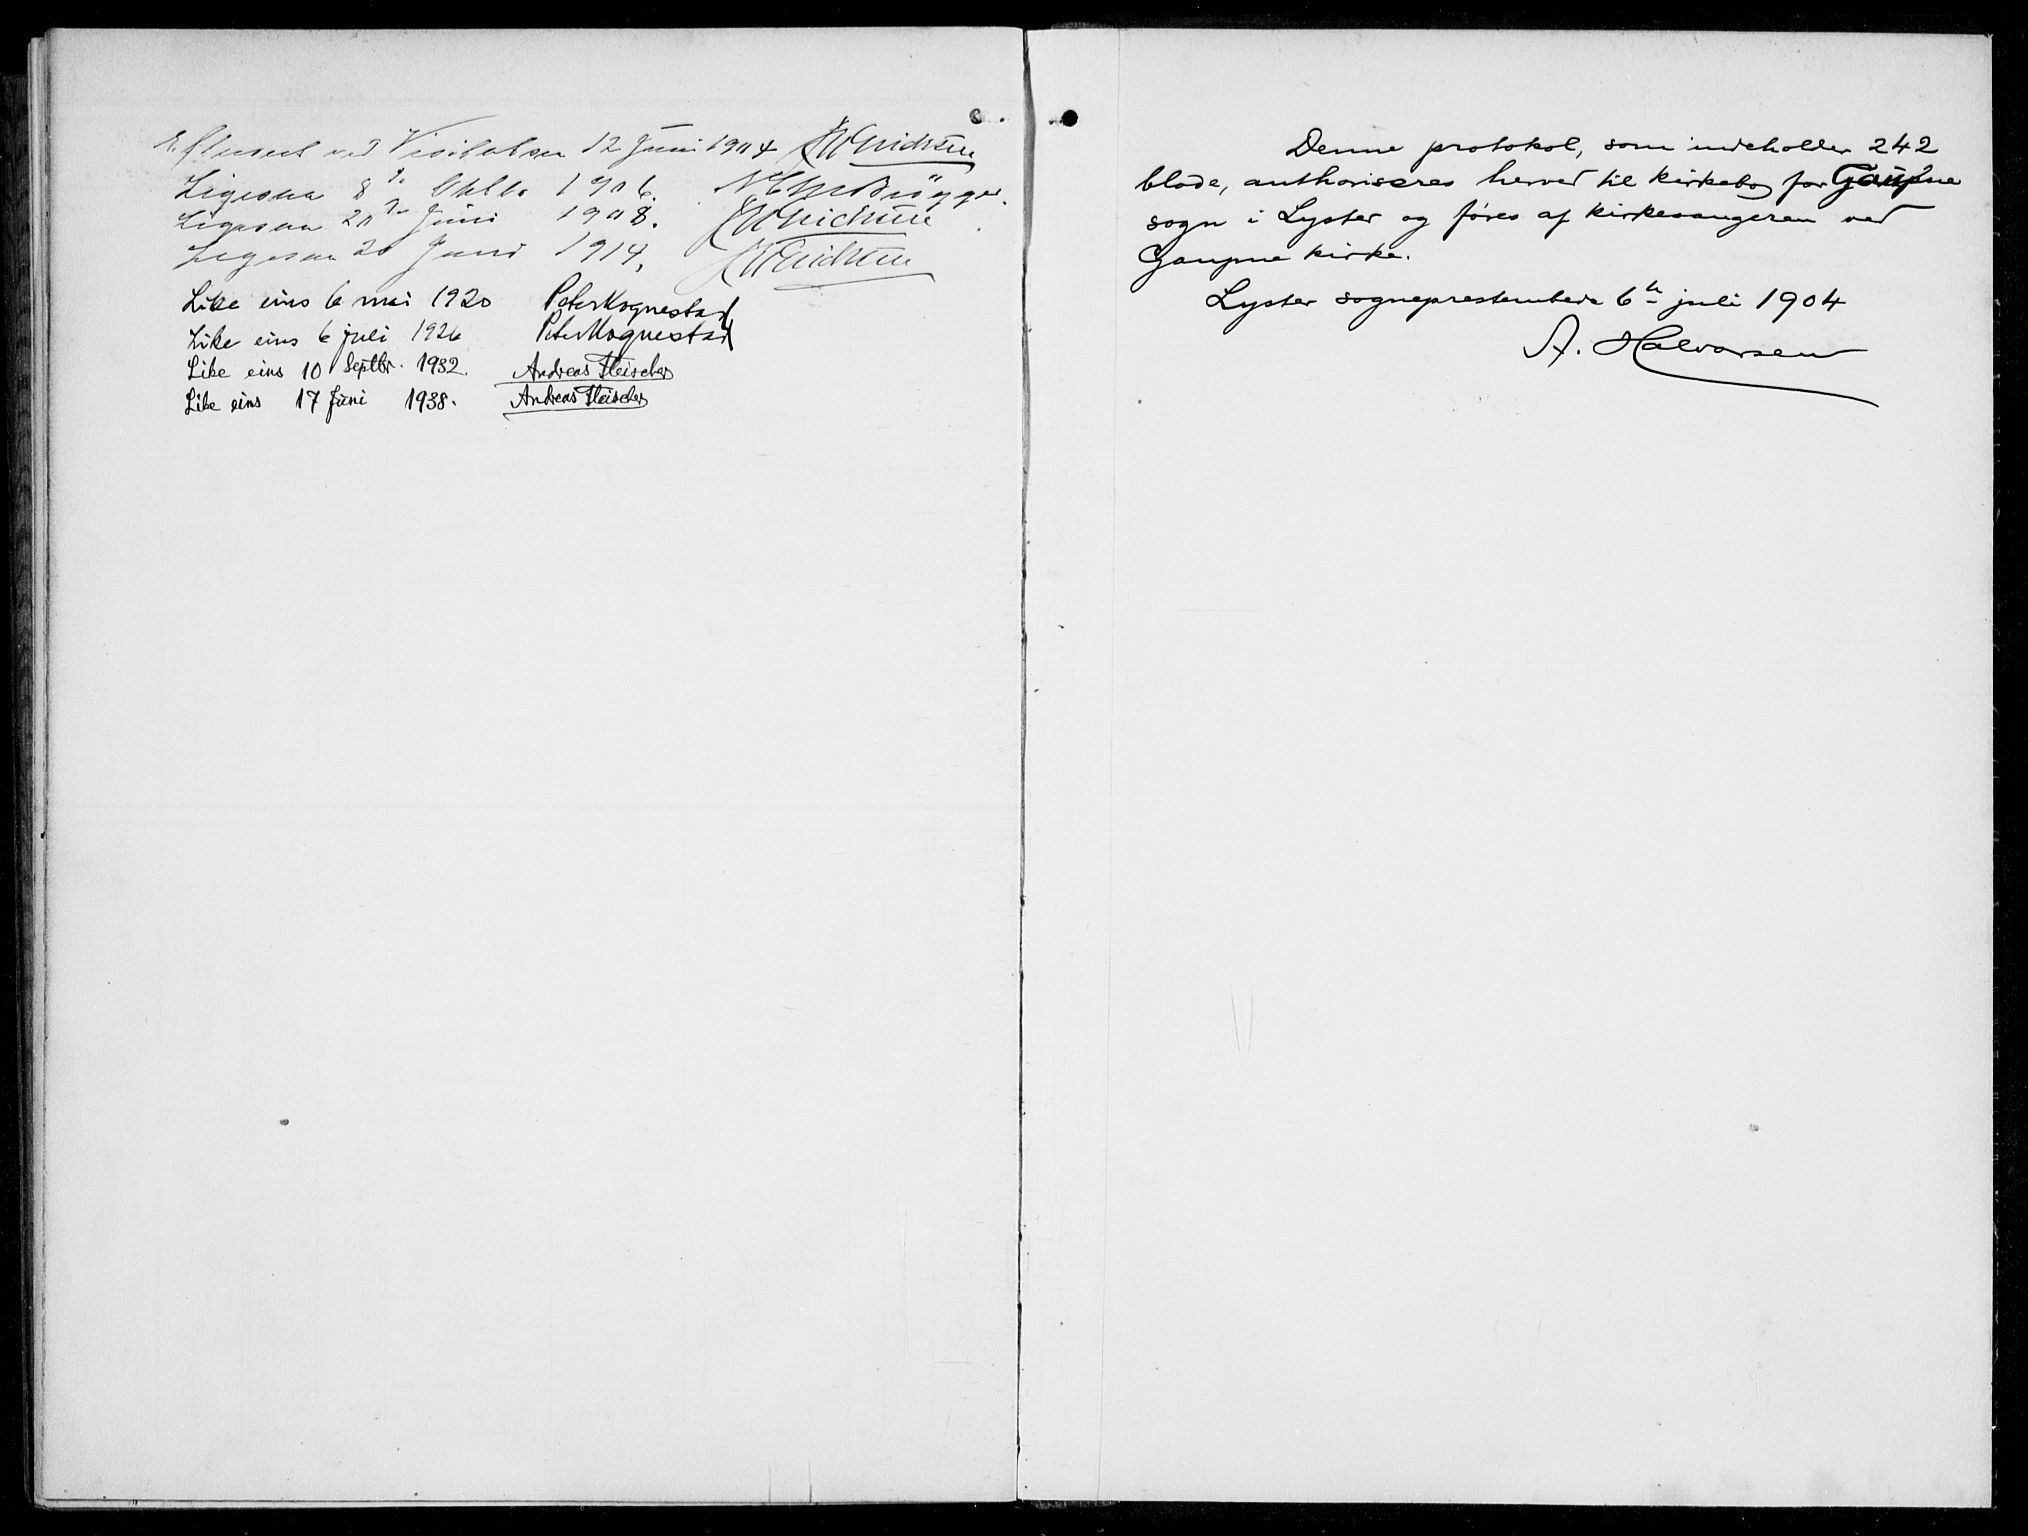 Efterseet ved Visitatsen 12 Juni 1904 JW Erichsen
Ligesaa 8de Oktbr 1906.
Ligesaa 20de Juni 1908. JW Erichsen
Ligesaa 20 Juni 1914. JW Erichsen
Like eins 6 mai 1920 Peter Hognestad
Like eins 6 juli 1926 Peter Hognestad
Like eins 10 Septbr. 1932. Andreas Fleischer
Like eins 17 Juni 1938. Andreas Fleischer
Denne protokol, som indeholder 242
blade, authoriseres herved til kirkebog for Gaupne
sogn i Lyster og føres af kirkesangeren ved
Gaupne kirke.
Lyster sogneprestembede 6te juli 1904
A. Halvorsen